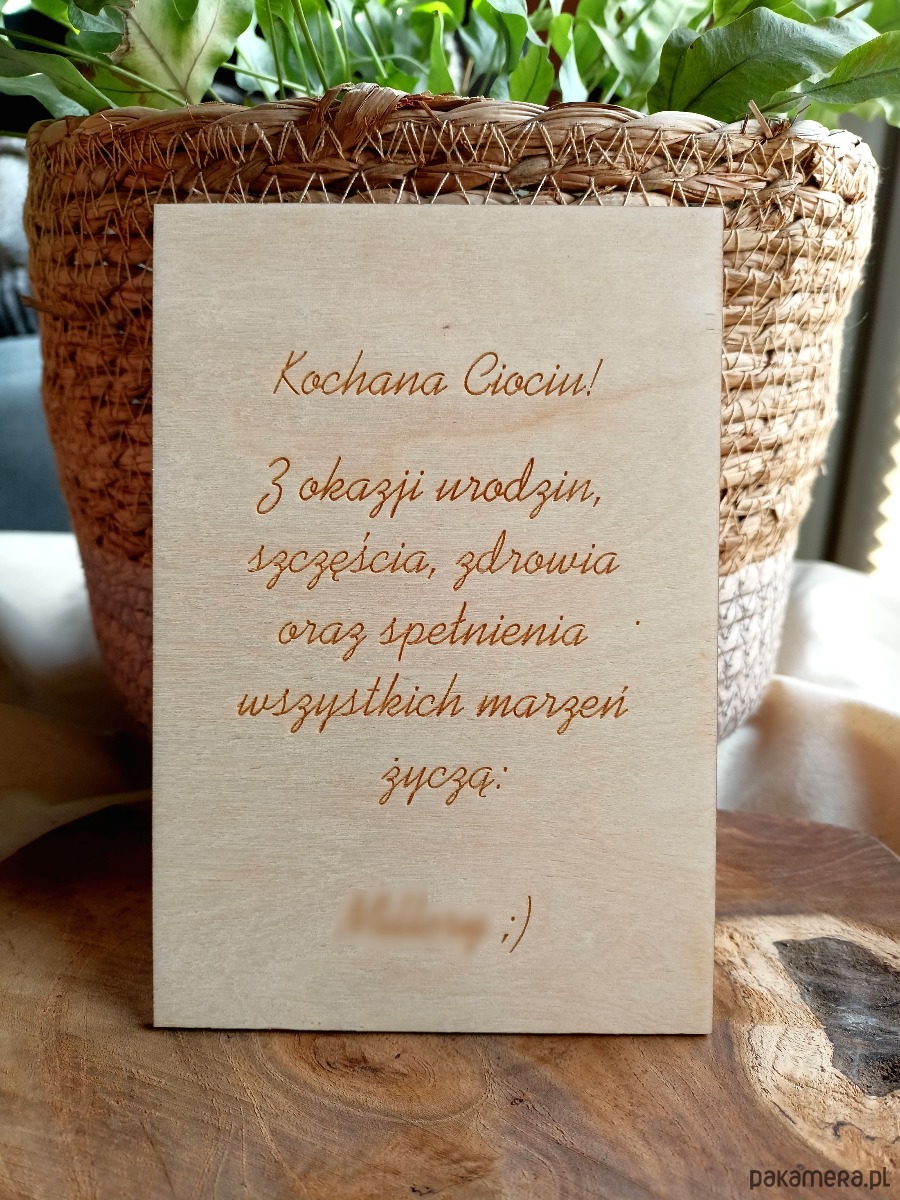 Kochana Ciociu!
Z okazji urodzin,
szczęścia, zdrowia
oraz spełnienia
wszystkich marzeń
życzą:
;)
pakamera.pl